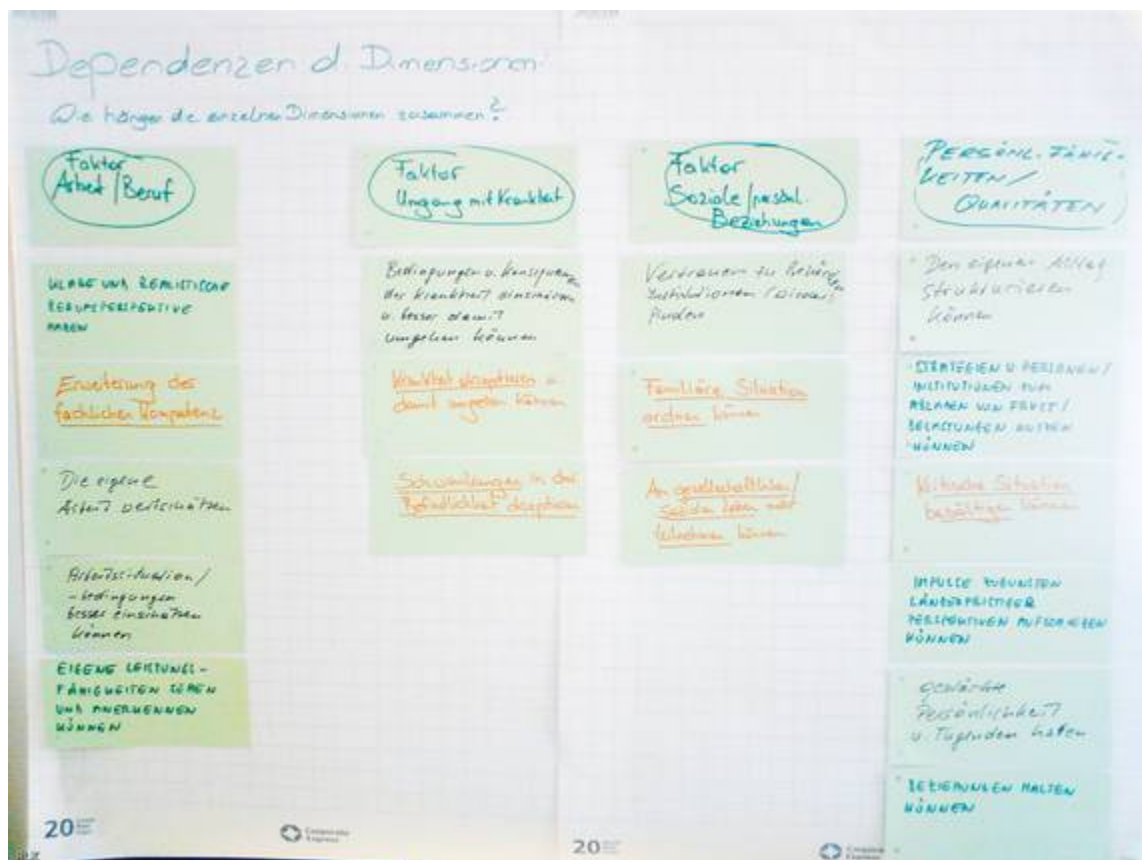 Dependenzen d. Dimensionen
Wie hängen die einzelnen Dimensionen zusammen?
Faktor
Arbeit/Beruf
KLARE UND REALISTISCHE
BERUFSPERSPEKTIVE
HABEN
Erweiterung der
fachlichen Kompetenz
Die eigene
Arbeit wertschätzen
Arbeitssituation/
-bedingungen
besser einschätzen
können
EIGENE LEISTUNGS-
FÄHIGKEITEN SEHEN
UND ANERKENNEN
KÖNNEN
Faktor
Umgang mit Krankheit
Bedingungen u. Konsequenzen
der Krankheit einschätzen
u. besser damit
umgehen können
Krankheit akzeptieren u.
damit umgehen können
Schwankungen in der
Befindlichkeit akzeptieren
Faktor
Soziale/persönl.
Beziehungen
Vertrauen zu Behörden
Institutionen
finden
Familiäre Situation
ordnen können
An gesellschaftlichen/
sozialen Leben
teilnehmen können
PERSÖNL. FÄHIG-
KEITEN/
QUALITÄTEN
Den eigenen Alltag
strukturieren
können
STRATEGIEN U. PERSONEN/
INSTITUTIONEN ZUM
ABLADEN VON FRUST/
BELASTUNGEN NUTZEN
KÖNNEN
Kritische Situation
bewältigen können
IMPULSE ZUGUNSTEN
LÄNGERFRISTIGER
PERSPEKTIVEN AUFSCHIEBEN
KÖNNEN
Persönlichkeit
u. Tugenden haben
BEZIEHUNGEN HALTEN
KÖNNEN
20
Corporate
Express
20
Corporate
Express